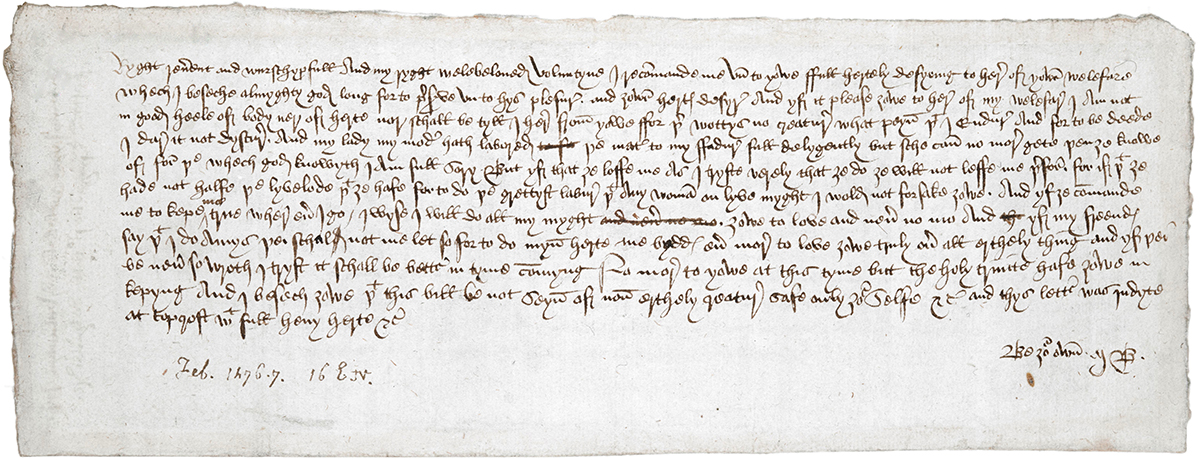 Ryght reverent and wurschypfull and my ryght welebeloved Voluntyne I recomande me un to yowe ffull hertely desyring to here of yowr welefare
whech I beseche almyghty god long for to preserve un to hys plesure and ȝowr hertes desyre And yf it please ȝowe to here of my welefare I am not
in good heele of body ner of herte nor schall be tyll I here from yowe ffor þer wottys no creature what peyn þat I endure And for to be deede
I dare it not dyscure And my lady my moder hath labored þe mater to my ffadure full delygently but sche can no more gete þen ȝe knowe
of for þe whech god knowyth I am full sory But yf that ȝe loffe me as I tryste verely that ȝe do ȝe will not leffe me þerfor for if þat ȝe
hade not halfe þe lyvelode þat ȝe hafe for to do þe grettyst labure þat any woman on lyve myght I wold not forsake ȝowe And yf ȝe commande
me to kepe me true where ever I go I wyse I will do all my myght ȝowe to love and never no mo And yf my freendes
say þat I do amys þei schal not me let so for to do myn herte me bydds ever more to love ȝowe truly over all erthely thing and yf þei
be never so wroth I tryst it schall be better in tyme commyng No more to yowe at this tyme but the holy trinite hafe ȝowe in
kepyng And I besech ȝowe þat this bill be not seyn of non erthely creature safe only ȝour selfe &c and thys letter was indyte
at Topcroft wyth full hevy herte &c
Be ȝour own M B
Feb. 1476.7. 16 E. IV.